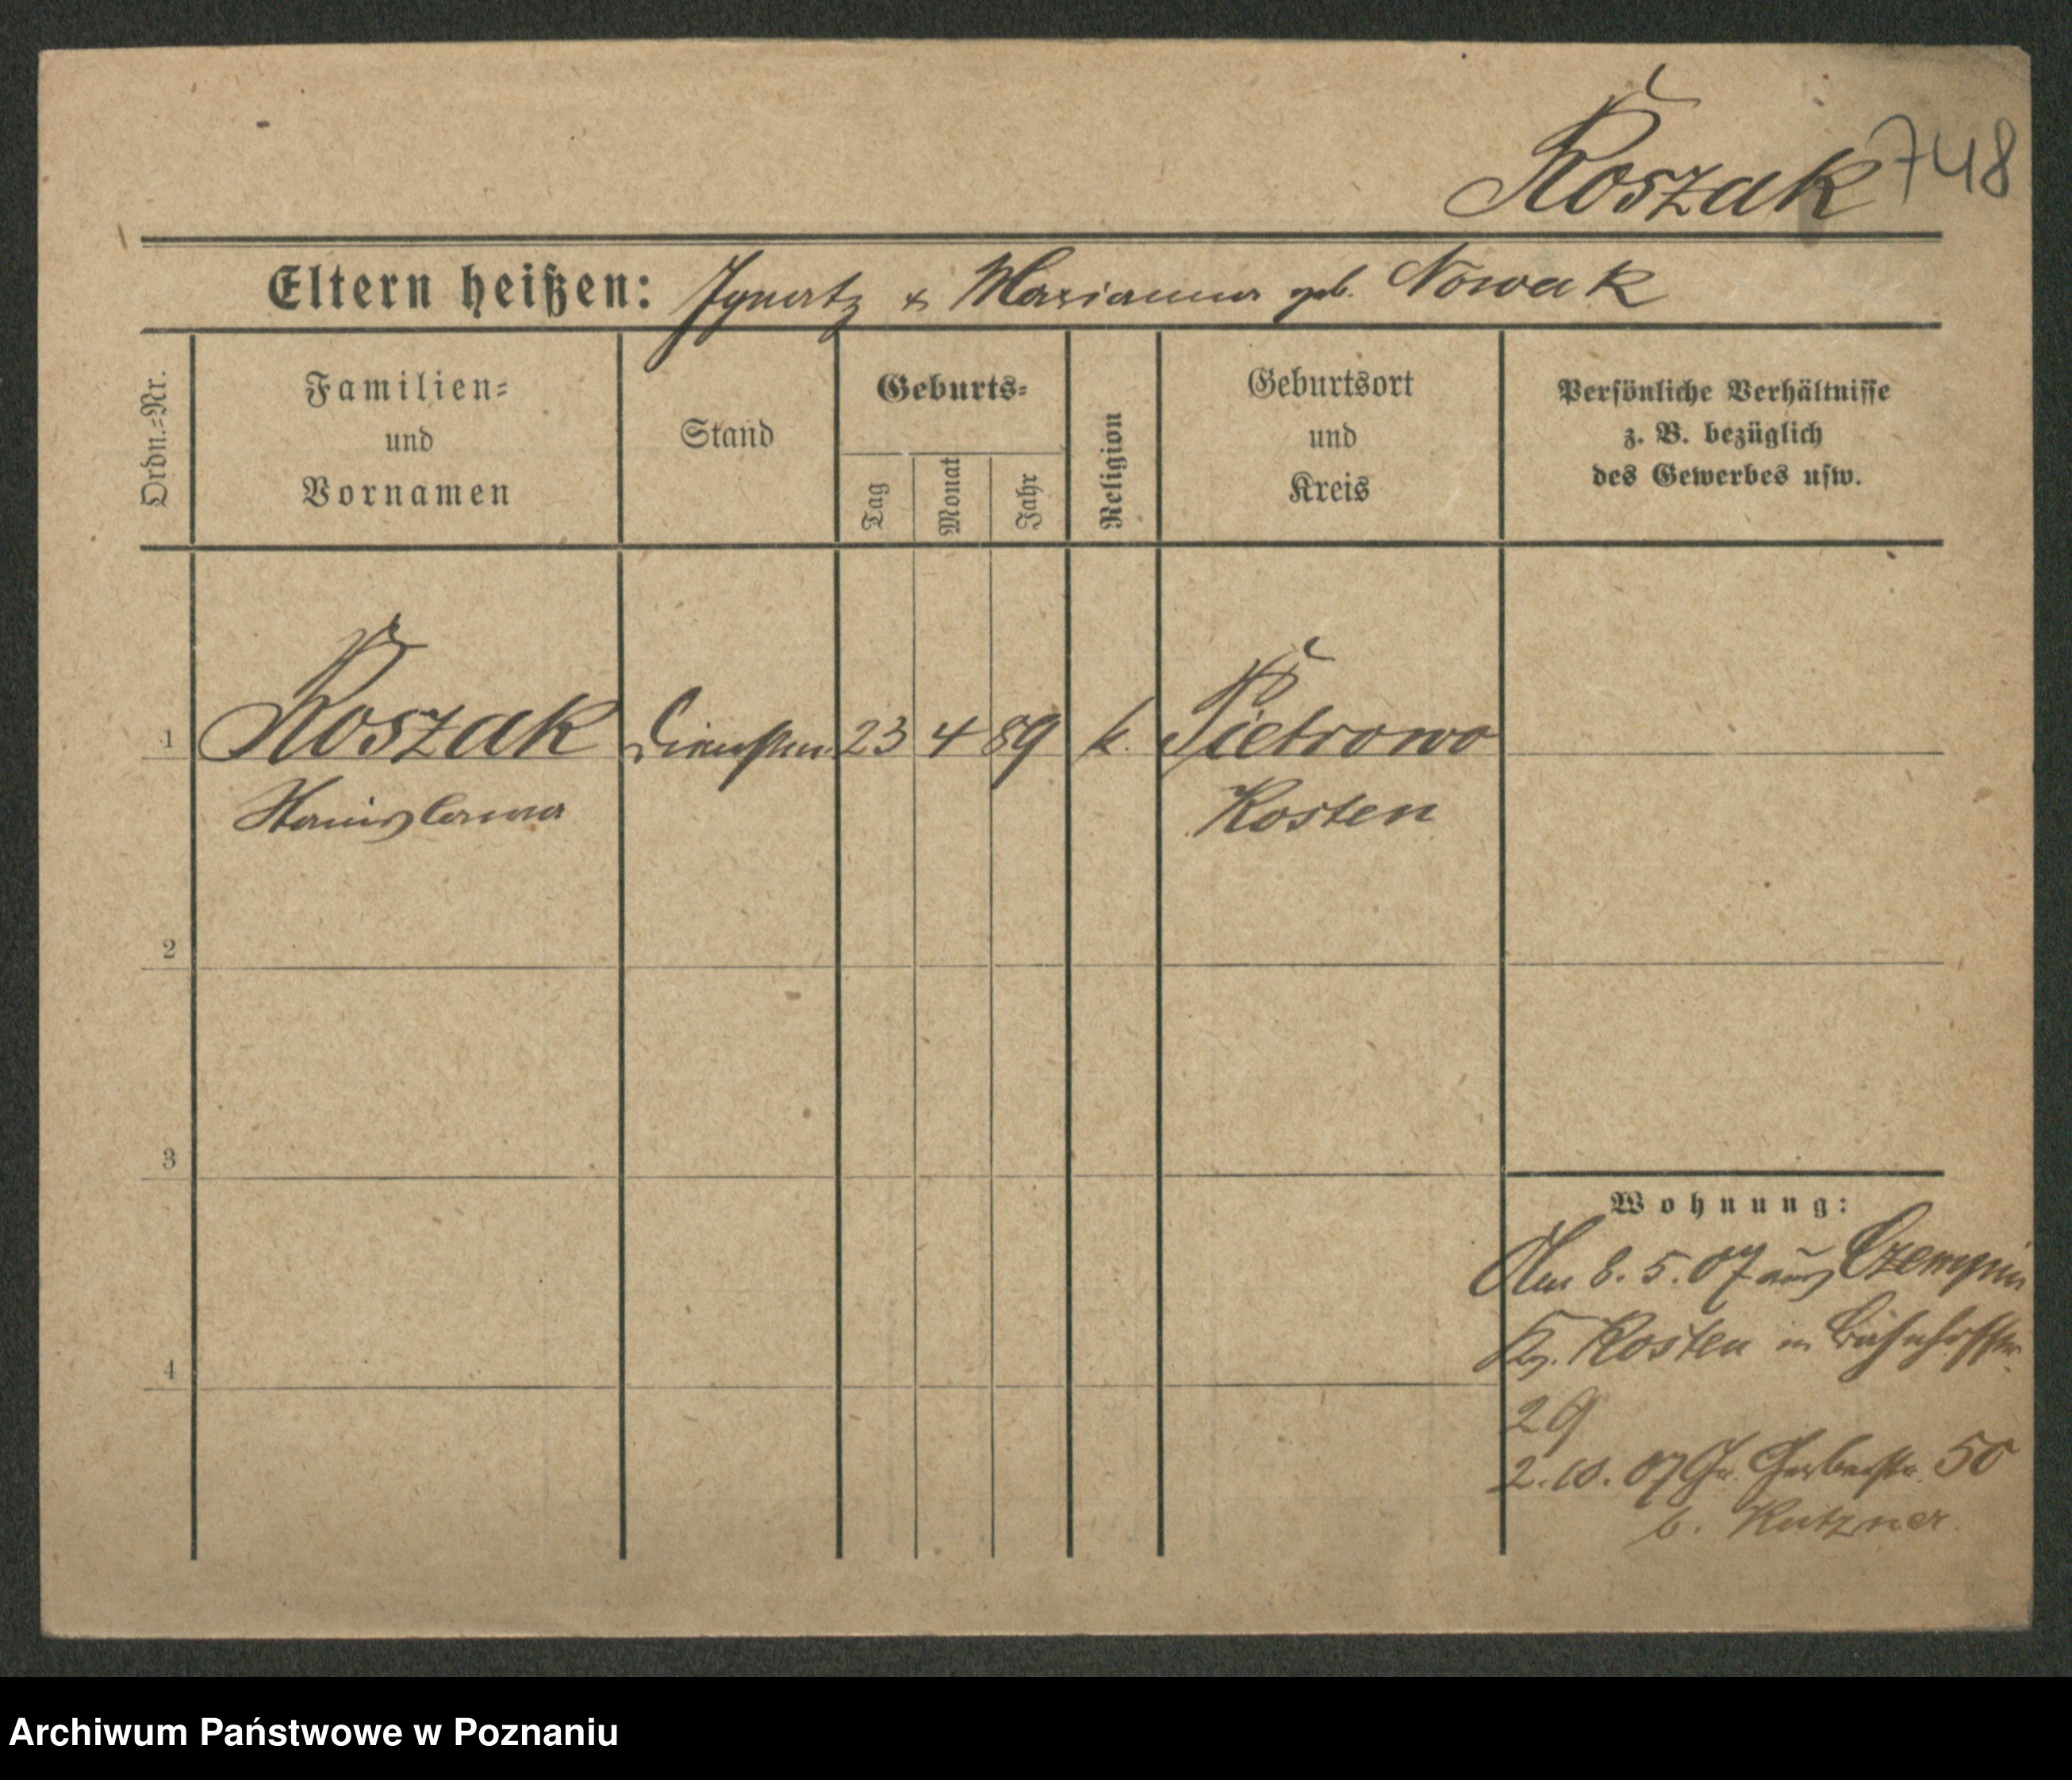 Roszak 748
Eltern heißen: Ignatz & Marianna geb. Nowak
Ordn.=Nr.
Familien=
und
Vornamen
Stand
Geburts=
Tag
Monat
Jahr
Religion
Geburtsort
und
Kreis
Persönliche Verhältnisse
z. B. bezüglich
des Gewerbes usw.
1 Roszak 23 4 89 k. Pietrowo
Stanislawa Kosten
2
3
4
Wohnung:
Am 8. 5. 07 aus Czempin
Kr. Kosten in Bahnhofstr.
29
2. 10. 07 Gr. Gerberstr. 50
b. Kutzner
Archiwum Państwowe w Poznaniu